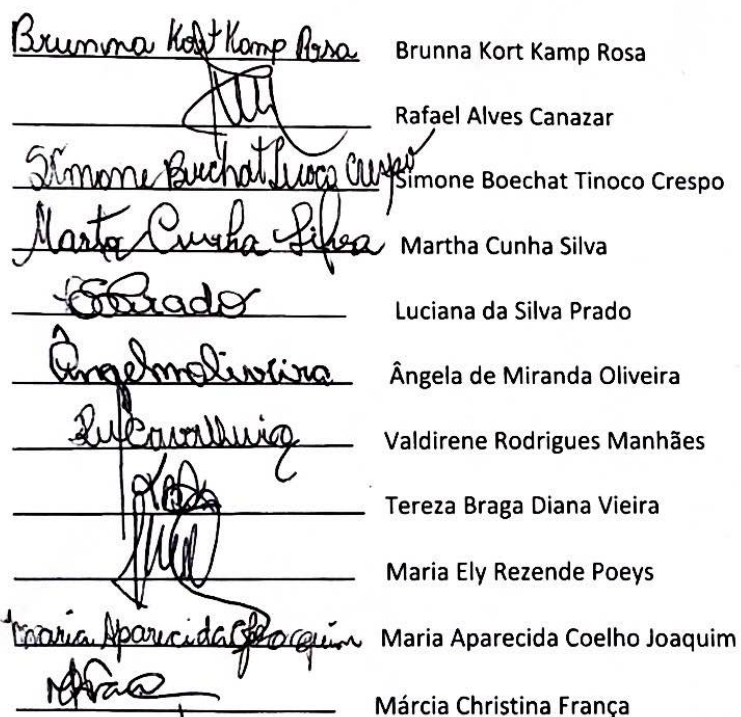 Brunna Kort Kamp Rosa Brunna Kort Kamp Rosa
Rafael Alves Canazar
Simone Boechat Tinoco Crespo Simone Boechat Tinoco Crespo
Marta Cunha Silva Martha Cunha Silva
Prado Luciana da Silva Prado
Ângelmoliveira Ângela de Miranda Oliveira
Valdirene Rodrigues Manhães
Tereza Braga Diana Vieira
Maria Ely Rezende Poeys
Maria Aparecida C Joaquim Maria Aparecida Coelho Joaquim
Márcia Christina França